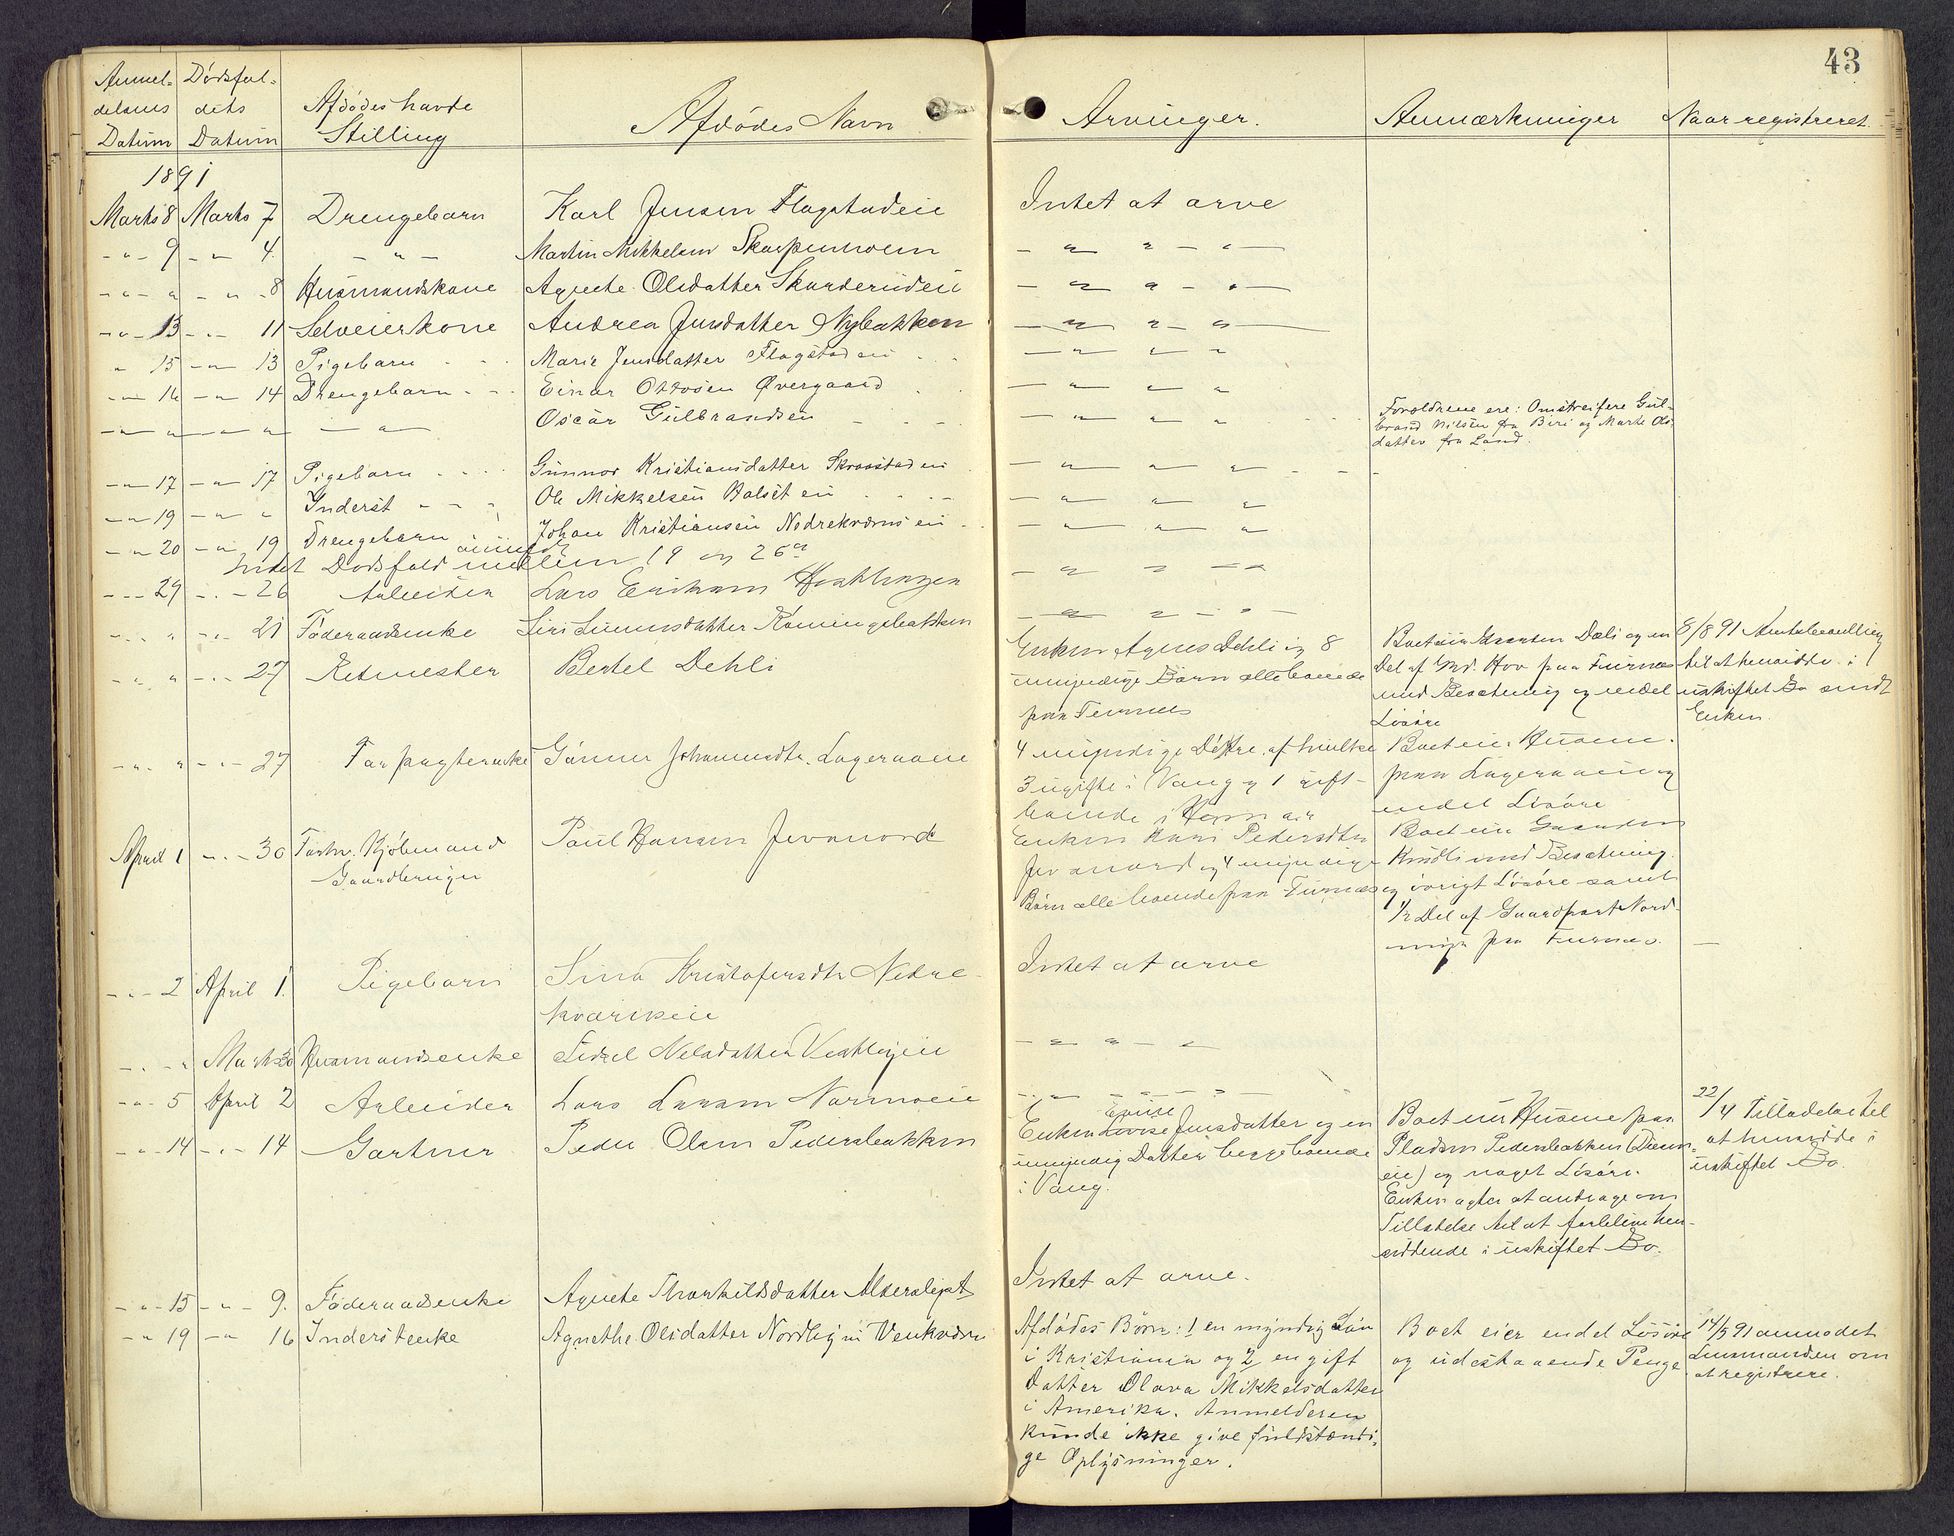 43
Anmel- Dödsfal-
delsens dets Afdödes havde
Datum Datum Stilling Afdödes Navn Arvinger. Anmærkninger Naar registreret.
1891
Marts 8 Marts 7 Drengebarn Karl Jensen Flagstadeie Intet at arve
- " - 9 - " - 4. - " - Martin Mikkelsen - " " - " -
- " - " - " - 8 Husmandskone Agnete Olsdatter Skarderudeie - " " - " -
- " - 13 - " - 11 Selveierkone Andrea Jensdatter Nybakken - " " - " -
" 15 - " - 13 Pigebarn Marie Jensdatter Flagstadeie - " " "
- " - 16 - " - 14 Drengebarn Einar Ottosen Övergaard - " " "
- " - " - " - " - " - Oscar Gulbrandsen - " " " Forældrene ere: Omstreifere Gul-
brand Nilsen fra Biri og Marte Ols-
datter fra Land.
- " - 17 - " - 17 Pigebarn Gunnor Kristiansdatter Skraastadeie - " " "
- " - 19 - " - " Inderst Ole Mikkelsen Balsteie - " " "
- " - 20 - " - 19 Drengebarn Johan Kristiansen Nedrekværnseie - " " "
Intet Dödsfald anmeldt mellem 19 og 26de
- " - 29 - " - 26 Arbeider Lars - " " - " -
- " - " - " - 21 Föderaadsenke Siri - " " - " -
- " - " - " - 27 Ritmester Bertel Dehli Enken Agnes Dehli og 8 Boet eier Gaarden Dæli og en 8/8 91 Amtsbevilling
umyndige Börn alle boende Del af Grd. Hov paa Furnes til at hensidde i
paa Furnes med Besætning og endel uskiftet Bo sendt
Lösöre Enken.
- " - " - " - 27 Forpagterenke Gunner Johannesdtr. Lageraaeie 4 myndige Döttre, af hvilke Boet eier Husene
3 ugifte i Vang og 1 gift- paa Lageraaeie og
boende i endel Lösöre
April 1 - " - 30 Forhv. Kjöbmand Paul Hansen Jevanord Enken Kari Pedersdtr. Boet eier Gaarden
Gaardbruger Jevanord og 4 myndige med Besætning
Börn alle boende paa Furnes og övrigt Lösöre samt
1/2 Del af Gaardpart Nord-
paa Furnes.
- " - 2 April 1. Pigebarn Sina Kristofersdtr Nedre- Intet at arve
kværnseie
- " - " Marts 30 Husmandsenke Sidsel Nelsdatter - " " - "
- " - 5 April 2 Arbeider Lars Larsen Narmoeie - " - " - " -
- " - 14 - " - 14 Gartner Peder Olsen Pedersbakken Enken Lovise Jensdatter og en Boet eier Husene paa 22/4 Tilladelse til
Lovise
umyndig Datter begge boende Pladsen Pedersbakken at hensidde i
i Vang. eie) og noget Lösöre. uskiftet Bo.
Enken agter at andrage om
Tilladelse til at forblive hen-
siddende i uskiftet Bo.
- " - 15 - " - 9. Föderaadsenke Agnete Thorkildsdatter Intet at arve.
- " 19 - " 16 Inderstenke Agnethe Olsdatter Afdödes Börn: 1 en myndig Sön Boet eier endel Lösöre 14/5 91 anmodet
i Kristiania og 2 en gift og udestaaende Penge Lensmanden om
Datter Olava Mikkelsdatter at registrere.
i Amerika. Anmelderen
kunde ikke give fuldstændi-
ge Oplysninger.